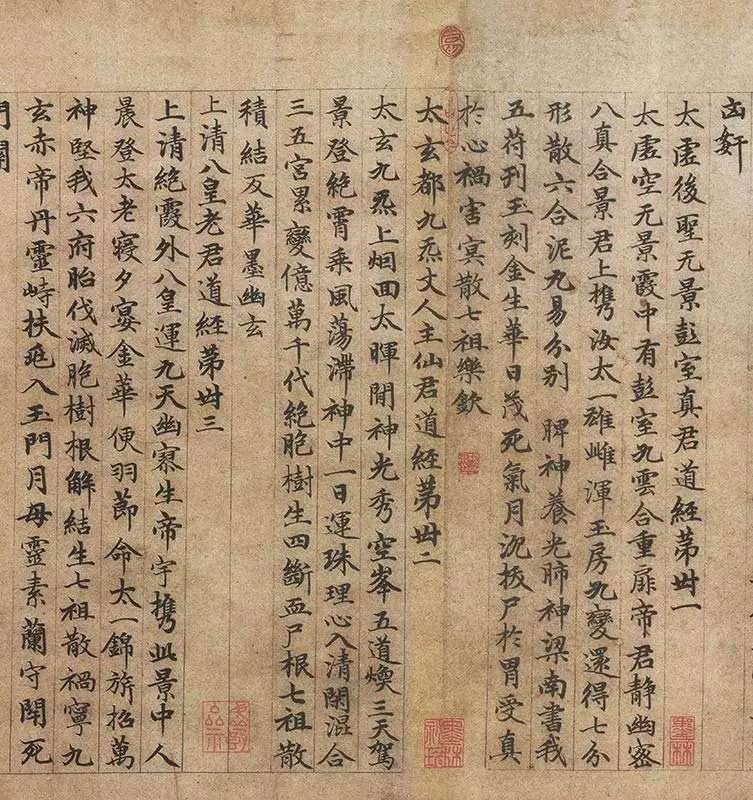 凶奸
太虛後聖无景彭室真君道經第卅一
太虛空无景霞中有彭室九雲合重扉帝君静幽密
八真合景君上携汝太一雄雌渾玉房九變還得七分
形散六合泥九易分別 脾神養光肺神梁南書我
五符刊玉刻金生華日茂死氣月沉拔尸於胃受真
於心禍害冥散七祖樂欽
太玄都九炁丈人主仙君道經第卅二
太玄九炁上烟回太暉開神光秀空峯五道煥三天駕
景登絕霄乘風蕩滯神中一日運珠理心入清閑混合
三五宮累變億萬千代絕胞樹生四斷血尸根七祖散
積結反華墨幽玄
上清八皇老君道經第卅三
上清絕霞外八皇運九天幽寥生帝宇携此景中人
晨登太老寢夕宴金華便羽節命太一錦旂招萬
神堅我六府胎伐滅胞樹根解結生七祖散禍寧九
玄赤帝丹靈峙扶兆入玉門月母靈素蘭守閇死
門開
墨林